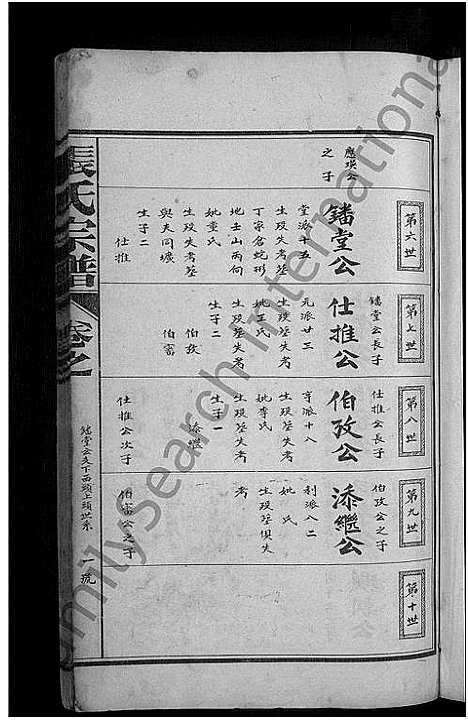 第六世
應瑛公
之子
鐥堂公
堂派十五
生歿失考塟
丁家倉蛇形
地壬山丙向
妣童氏
生歿失考塟
與夫同壙
生子二
仕推
第七世
鐥堂公長子
仕推公
元派廿三
生歿塟失考
妣王氏
生歿塟失考
生子二
伯孜
伯富
第八世
仕推公長子
伯孜公
亨派十八
生歿塟失考
妣李氏
生歿塟失考
生子一
添繼
仕推公次子
第九世
伯孜公之子
添繼公
利派八二
妣 氏
生歿塟俱失
考
伯富公之子
第十世
張氏宗譜
卷之
鐥堂公支下西頭上頭世系
一
familysearch International